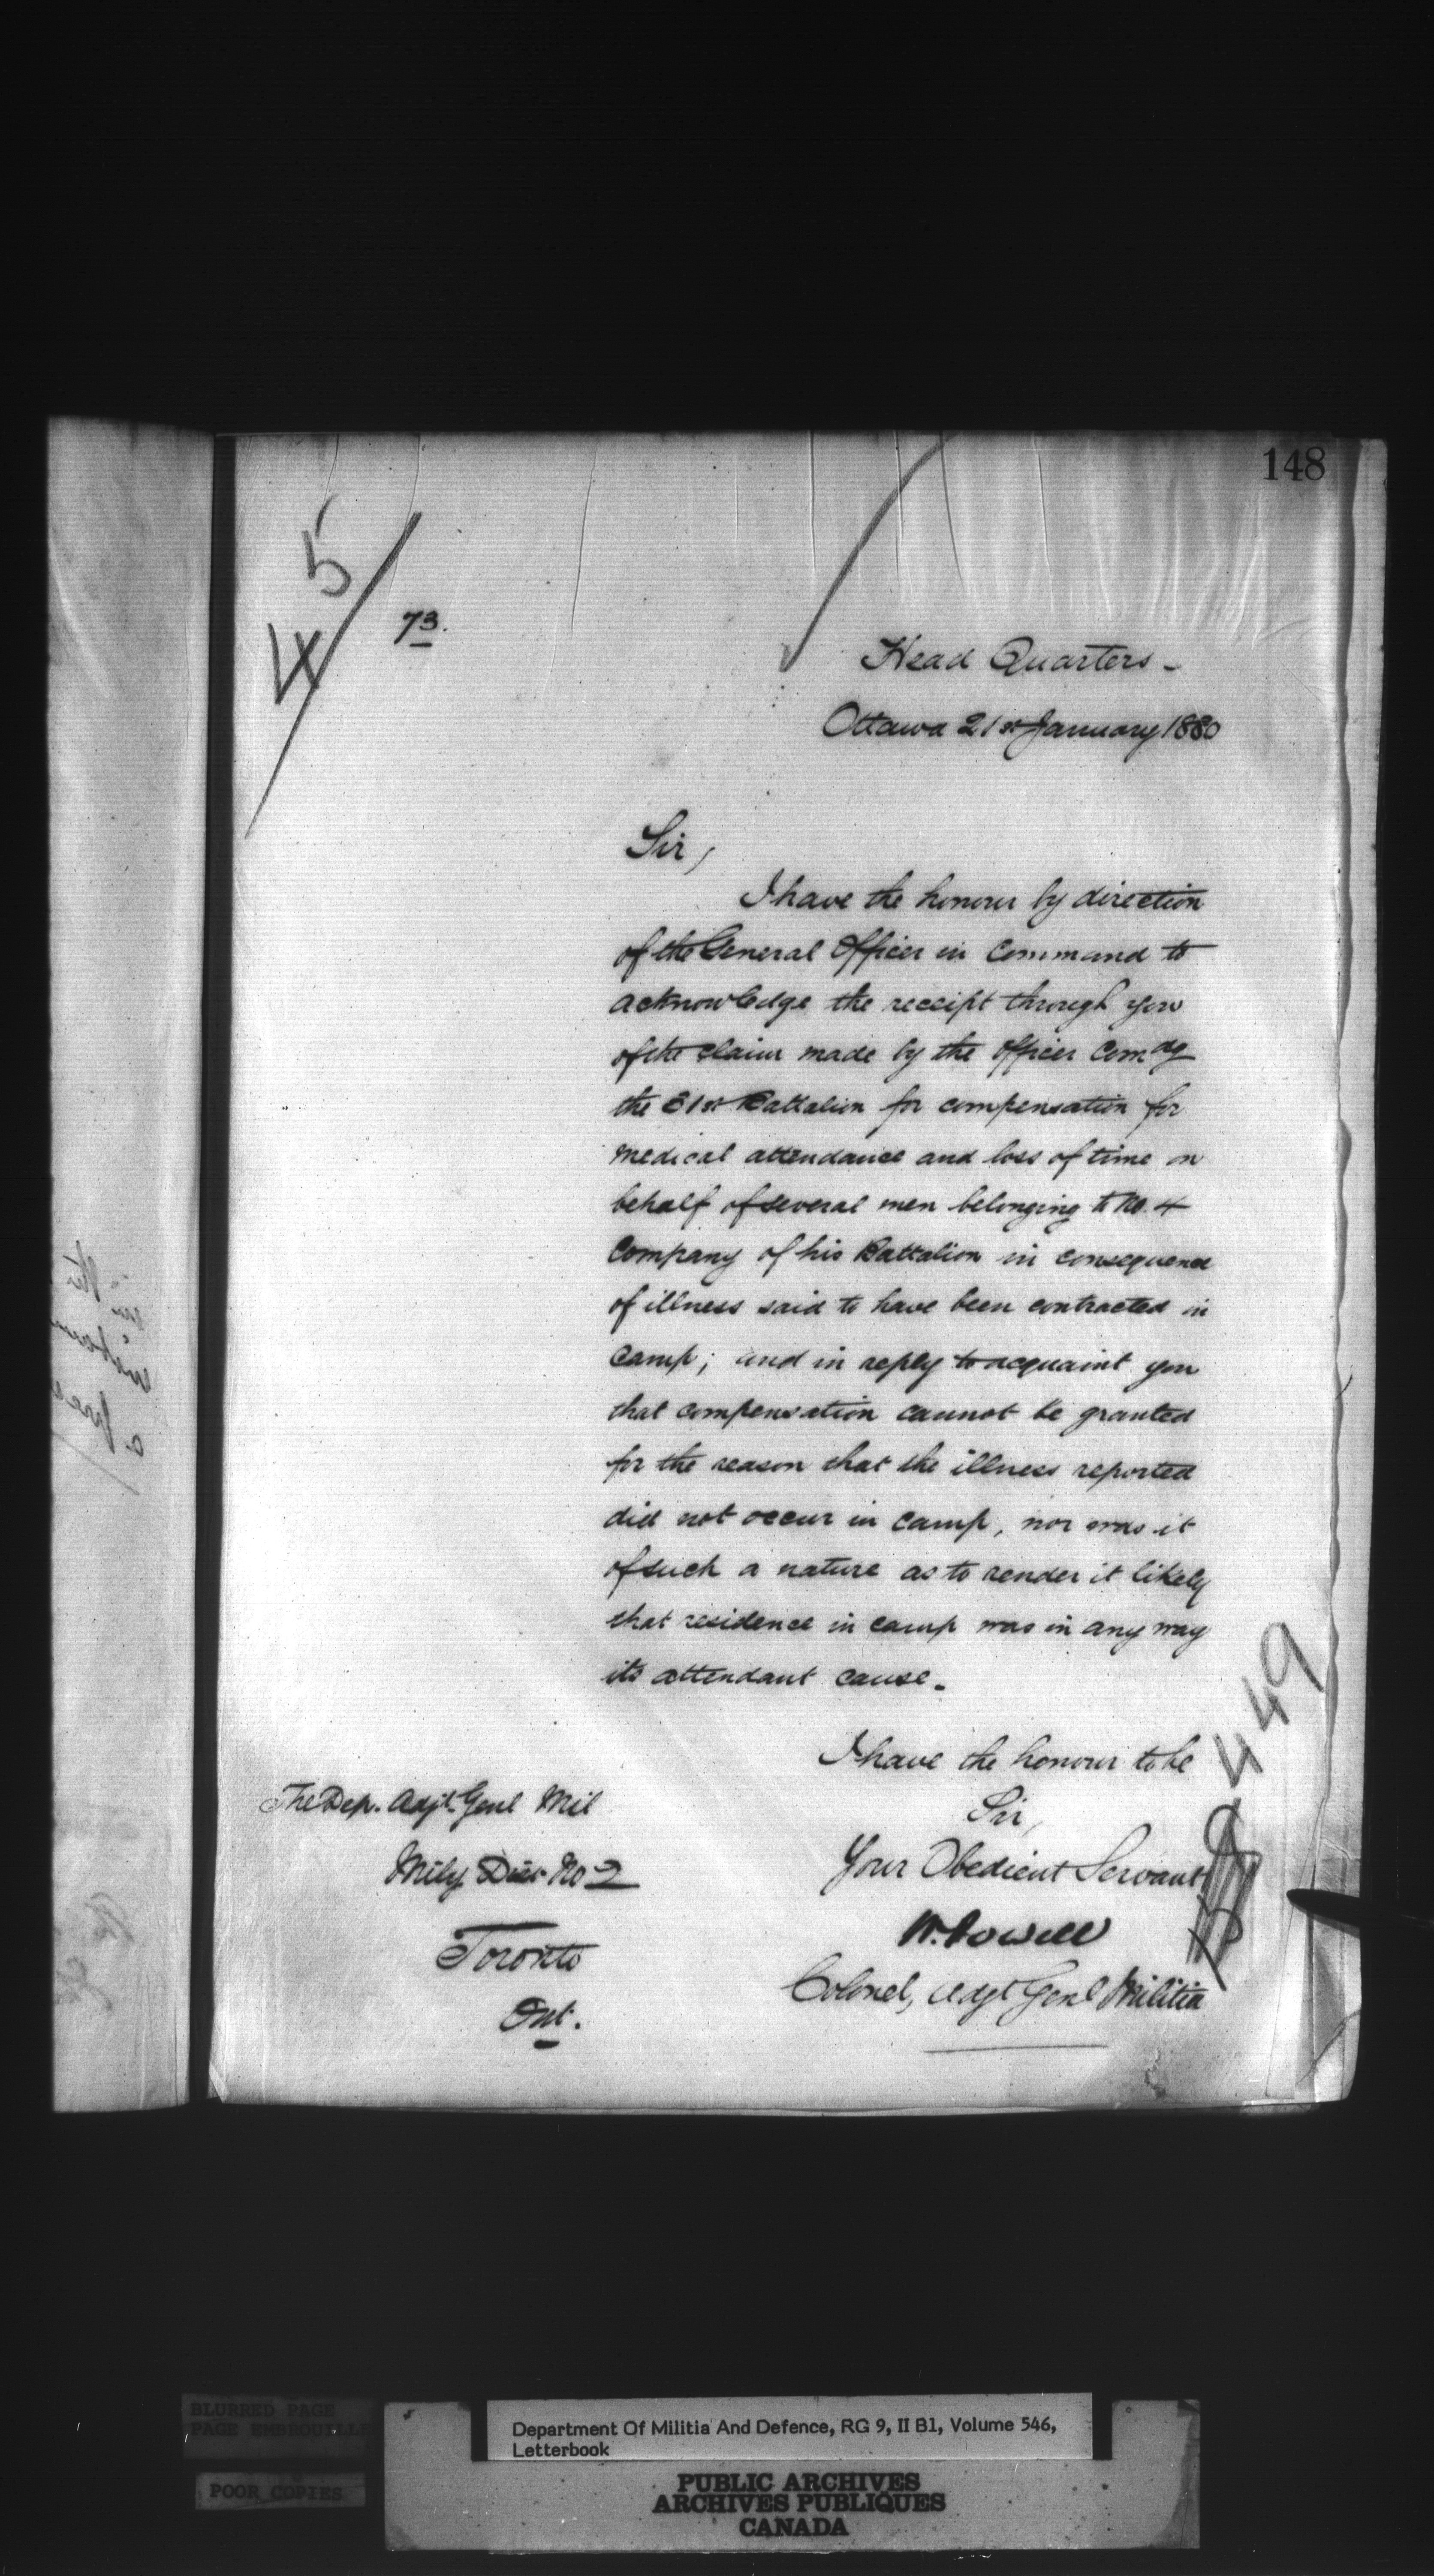 148
5
4
73.
Head Quarters -
Ottawa 21st January 1880
Sir,
I have the honour by direction
of the General Officer in Command to
acknowledge the receipt through you
of the claim made by the Officer Comdg
the 31st Battalion for compensation for
medical attendance and loss of time on
behalf of several men belonging to No. 4
Company of his Battalion in consequence
of illness said to have been contracted in
Camp; and in reply to acquaint you
that compensation cannot be granted
for the reason that the illness reported
did not occur in camp, nor was it
of such a nature as to render it likely
that residence in camp was in any way
its attendant cause.
I have the honour to be
Sir,
Your Obedient Servant
W. Powell
Colonel, Adjt Genl Militia
449
The Dep. Adjt. Genl Mil
Mily Dist No 2
Toronto
Ont.
BLURRED PAGE
PAGE EMBROUILLE
POOR COPIES
Department Of Militia And Defence, RG 9, II B1, Volume 546,
Letterbook
PUBLIC ARCHIVES
ARCHIVES PUBLIQUES
CANADA